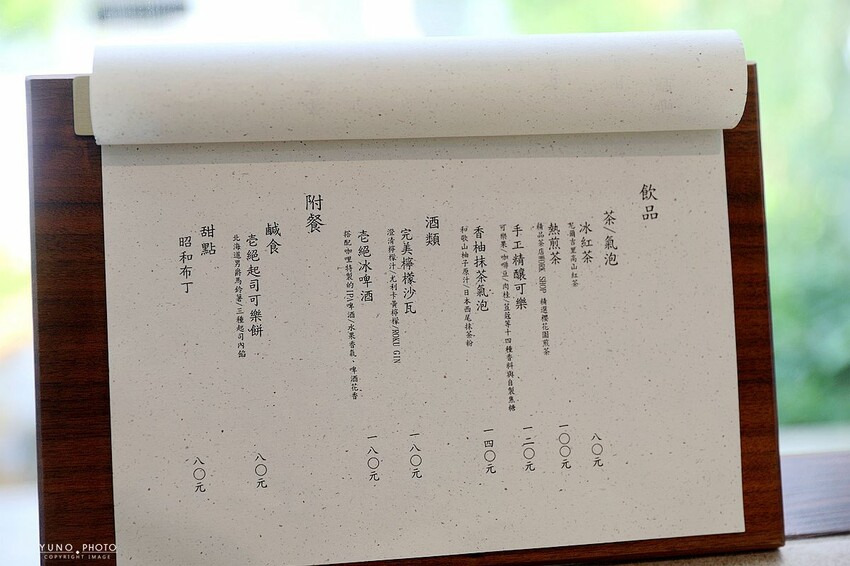 飲品
茶/氣泡
冰紅茶
尼爾吉里高山紅茶
八〇元
熱煎茶
精品茶店WORK SHOP 精選櫻花園煎茶
一〇〇元
手工精釀可樂
可樂果、咖啡豆、肉桂、荳蔻等十四種香料與自製焦糖
一二〇元
香柚抹茶氣泡
和歌山柚子原汁/日本西尾抹茶粉
一四〇元
酒類
完美檸檬沙瓦
澄清檸檬汁/尤利卡黃檸檬/ROKU GIN
一八〇元
壱絕冰啤酒
搭配咖哩特製的IPA啤酒/水果香氣、啤酒花香
一八〇元
附餐
鹹食
壱絕起司可樂餅
北海道男爵馬鈴薯/三種起司內餡
八〇元
甜點
昭和布丁
八〇元
YUNO PHOTO
COPYRIGHT IMAGE